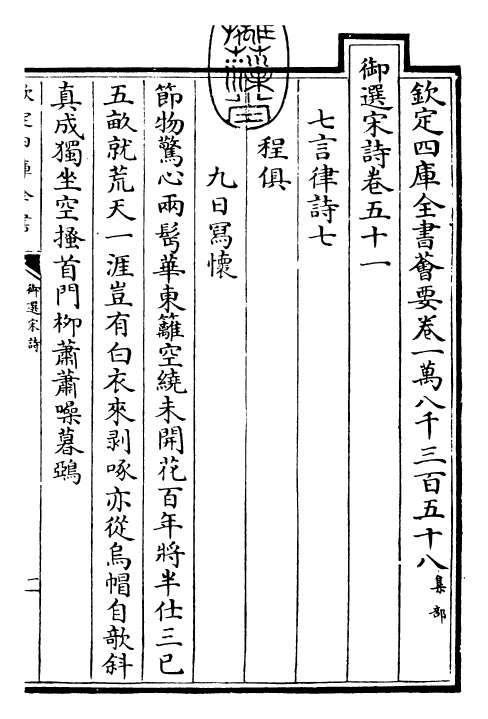 欽定四庫全書薈要卷一萬八千三百五十八集部
御選宋詩卷五十一
七言律詩七
程俱
九日寫懷
節物驚心兩鬂華東籬空繞未開花百年將半仕三已
五畝就荒天一涯豈有白衣來剥啄亦從烏帽自欹斜
真成獨坐空搔首門栁蕭蕭噪暮鵶
御選宋詩